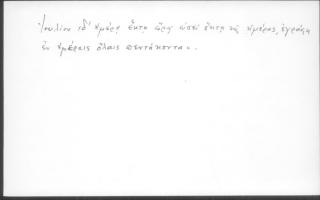 Ἰουλίου ιδ' ἡμέρᾳ ἕκτῃ ὥρᾳ ὡσεὶ ἕκτῃ τῆς ἡμέρας, ἐγράφη
ἐν ἡμέραις ὅλαις πεντήκοντα.